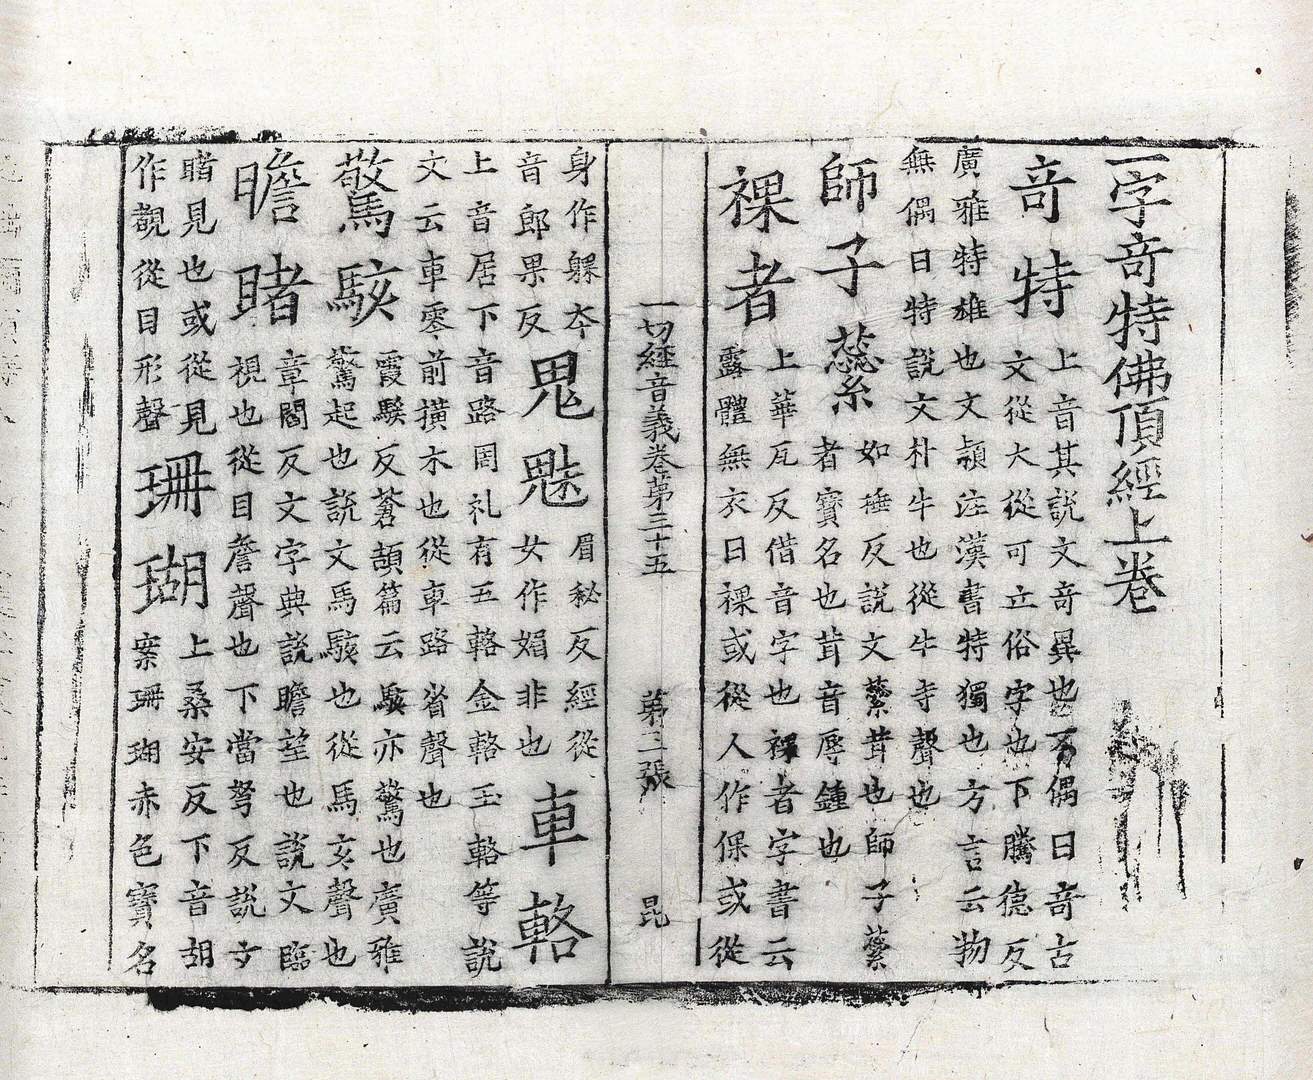 一字奇特佛頂經上卷
奇特 上音其說文奇異也有偶曰奇古
文從大從可立俗字也下騰德反
廣雅特雄也文頴注漢書特獨也方言云物
無偶曰特說文朴牛也從牛寺聲也
師子蘂 如捶反說文蘂茸也師子蘂
者寶名也茸音辱鍾也
裸者 上華瓦反借音字也裸者字書云
露體無衣曰裸或從人作倮或從
一切經音義卷第三十五 第三張 昆
身作躶夲
音郎果反
鬼魅 眉秘反經從
女作媚非也
車輅
上音居下音路周礼有五輅金輅玉輅等說
文云車零前橫木也從車路省聲也
驚駭 霞騃反蒼頡篇云駭亦驚也廣雅
驚起也説文馬駭也從馬亥聲也
瞻睹 章閻反文字典說瞻望也說文臨
視也從目詹聲也下當弩反説文
睹見也或從見
作覩從目形聲
珊瑚 上桑安反下音胡
案珊瑚赤色寶名